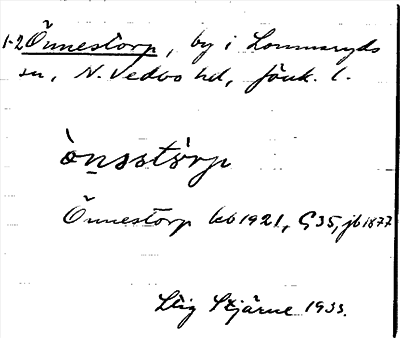 1-2 Önnestorp, by i Lommaryds
sn, N. Vedbo hd, Jönk. l.
ònsstórp
Önnestorp kb 1921, G 35, jb 1877
Stig Stjärne 1933.